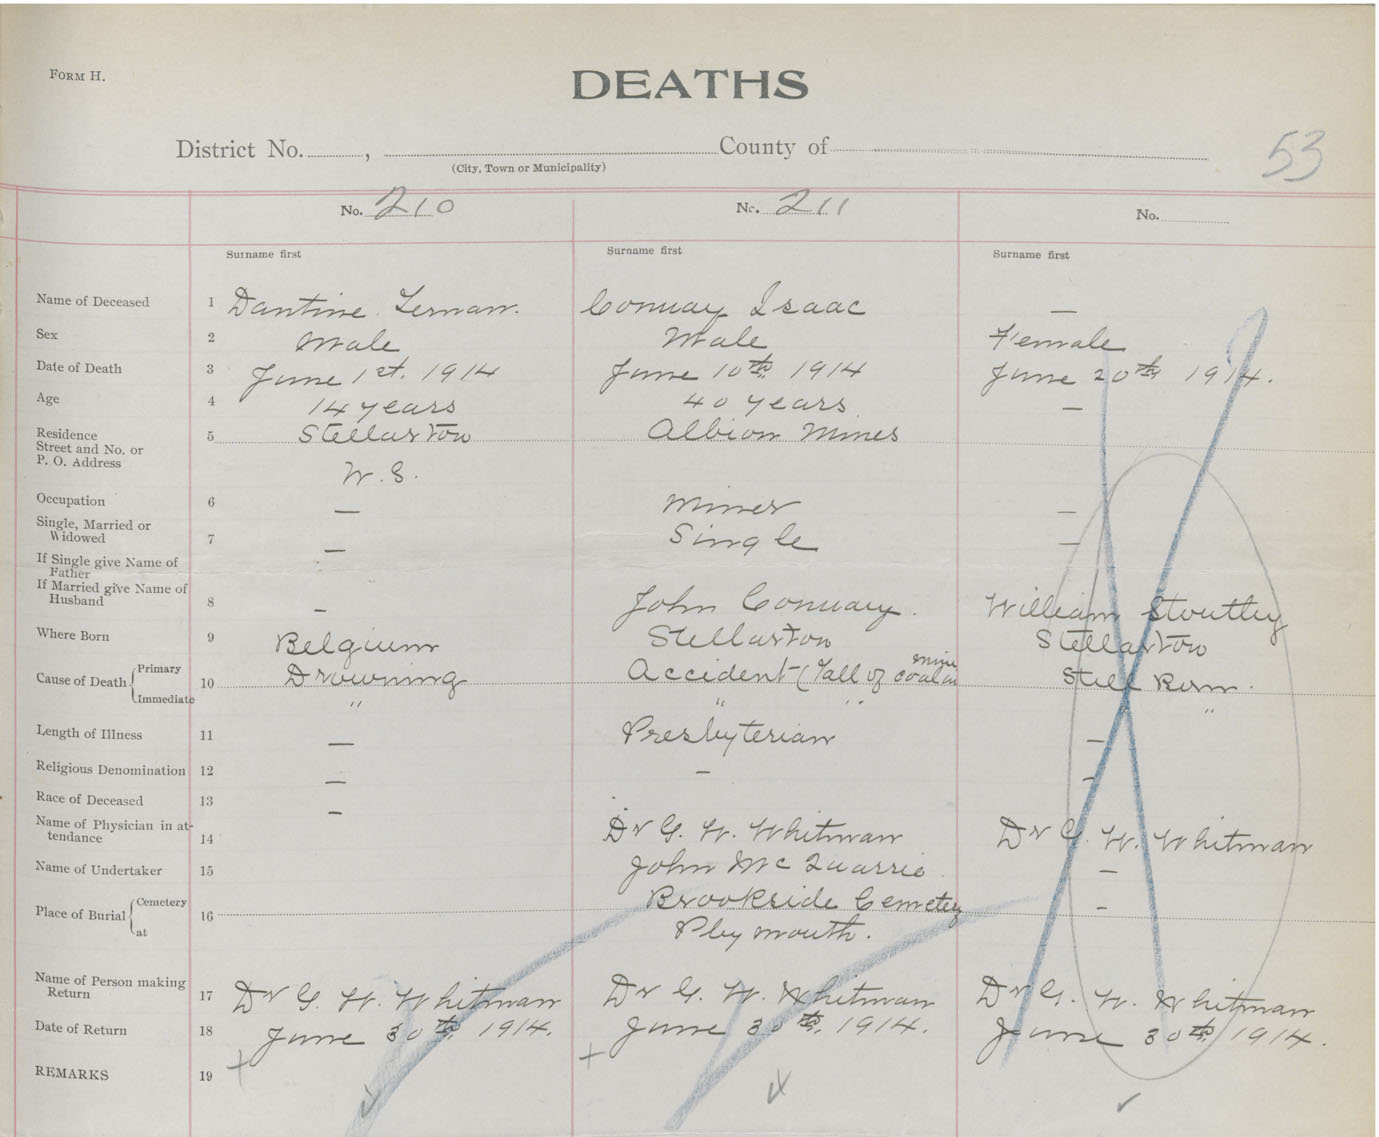 FORM H.
DEATHS
53
District No. , County of
(City, Town or Municipality)
No. 210 No. 211 No.
Surname first Surname first Surname first
Name of Deceased 1 Dantine Conway Isaac —
Sex 2 Male Male Female
Date of Death 3 June 1st. 1914 June 10th 1914 June 20th 1914.
Age 4 14 years 40 years —
Residence 5 Stellarton Albion Mines
Street and No. or
P. O. Address
N. S.
Occupation 6 — Miner —
Single, Married or
Widowed 7 — Single —
If Single give Name of
Father
If Married give Name of
Husband 8 — John Conway. William
Where Born 9 Belgium Stellarton Stellarton
Cause of Death Primary 10 Drowning Accident (Fall of coal in mine Still Born.
Immediate " " " "
Length of Illness 11 — Presbyterian —
Religious Denomination 12 — — —
Race of Deceased 13 —
Name of Physician in at-
tendance 14 Dr G. W. Whitman Dr G. W. Whitman
Name of Undertaker 15 John McQuarrie —
Place of Burial Cemetery 16 Brookside Cemetery —
at Plymouth.
Name of Person making
Return 17 Dr G. W. Whitman Dr G. W. Whitman Dr G. W. Whitman
Date of Return 18 June 30th. 1914. June 30th. 1914. June 30th. 1914.
REMARKS 19